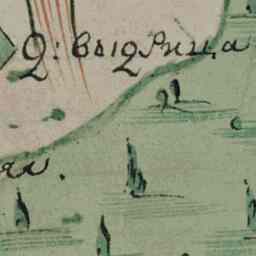 д: выдрица